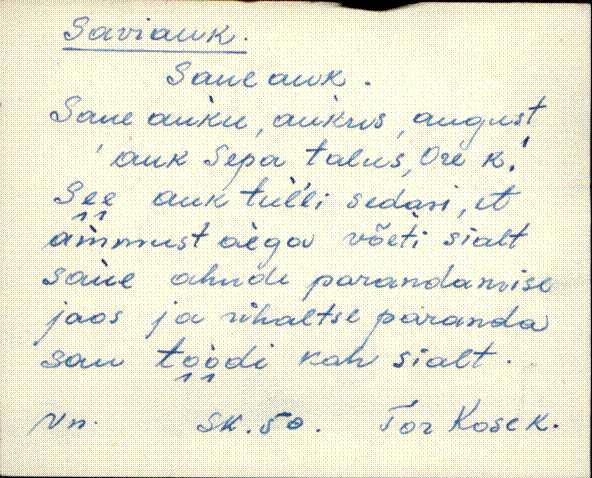 Saviauk.
Saue auk.
Saue auku, aukus, august
'auk Sepa talus, Ore k.
See auk tuĺli sedasi, et
ammust aega võeti sialt
saue ahude parandamise
jaos ja rihaltse paranda
sau töödi kah sialt.
Vn. SK. 50. Tor Kose k.